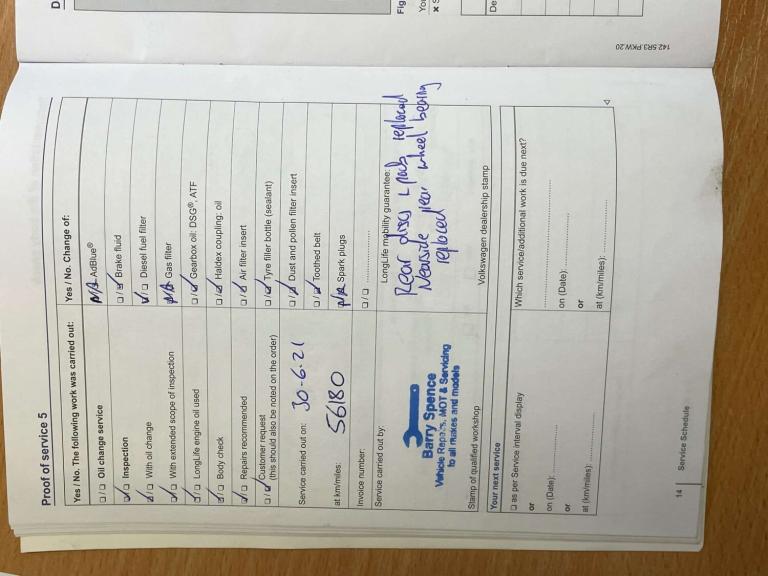 Proof of service 5
Yes / No. The following work was carried out:
☐/☐ Oil change service
☐/☐ Inspection
☐/☐ With oil change
☐/☐ With extended scope of inspection
☐/☐ LongLife engine oil used
☐/☐ Body check
☐/☐ Repairs recommended
☐/☐ Customer request
(this should also be noted on the order)
Service carried out on: 30-6-21
at km/miles: 56180
Invoice number:
Service carried out by:
Barry Spence
Vehicle Repairs, MOT & Servicing
to all makes and models
Stamp of qualified workshop
Yes / No. Change of:
N/A AdBlue®
☐/☐ Brake fluid
☐/☐ Diesel fuel filter
N/A Gas filter
☐/☐ Gearbox oil: DSG®, ATF
☐/☐ Haldex coupling: oil
☐/☐ Air filter insert
☐/☐ Tyre filler bottle (sealant)
☐/☐ Dust and pollen filter insert
☐/☐ Toothed belt
N/A Spark plugs
☐/☐ ....................
LongLife mobility guarantee:
Rear discs & pads replaced
Nearside rear wheel bearing
replaced
Volkswagen dealership stamp
Your next service
☐ as per Service interval display
or
on (Date): ....................
or
at (km/miles): ....................
Which service/additional work is due next?
....................
on (Date): ....................
or
at (km/miles): ....................
14 Service Schedule
142.5R3.PKW.20
D
Fig
You
De